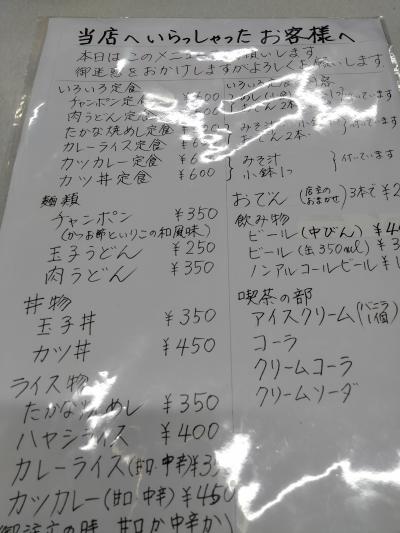 当店へいらっしゃったお客様へ
本日はこのメニュー お願いします
御迷惑をおかけしますがよろしくお願いします
いろいろ定食
チャンポン定食 ¥600
肉うどん定食
たかな焼めし定食
カレーライス定食
カツカレー定食
カツ丼定食 ¥600
付いています
みそ汁
おでん2本
付いています
みそ汁
小鉢1つ
付いています
おでん(店主のおまかせ)3本で
麺類
チャンポン ¥350
(かつお節といりこの和風味)
玉子うどん ¥250
肉うどん ¥350
丼物
玉子丼 ¥350
カツ丼 ¥450
ライス物
たかな焼めし ¥350
ハヤシライス ¥400
カレーライス(甘口・中辛)
カツカレー(甘口・中辛)¥450
御注文の時 甘口か中辛か)
飲み物
ビール(中びん)
ビール(缶350ml)
ノンアルコールビール
喫茶の部
アイスクリーム(バニラ1個)
コーラ
クリームコーラ
クリームソーダ